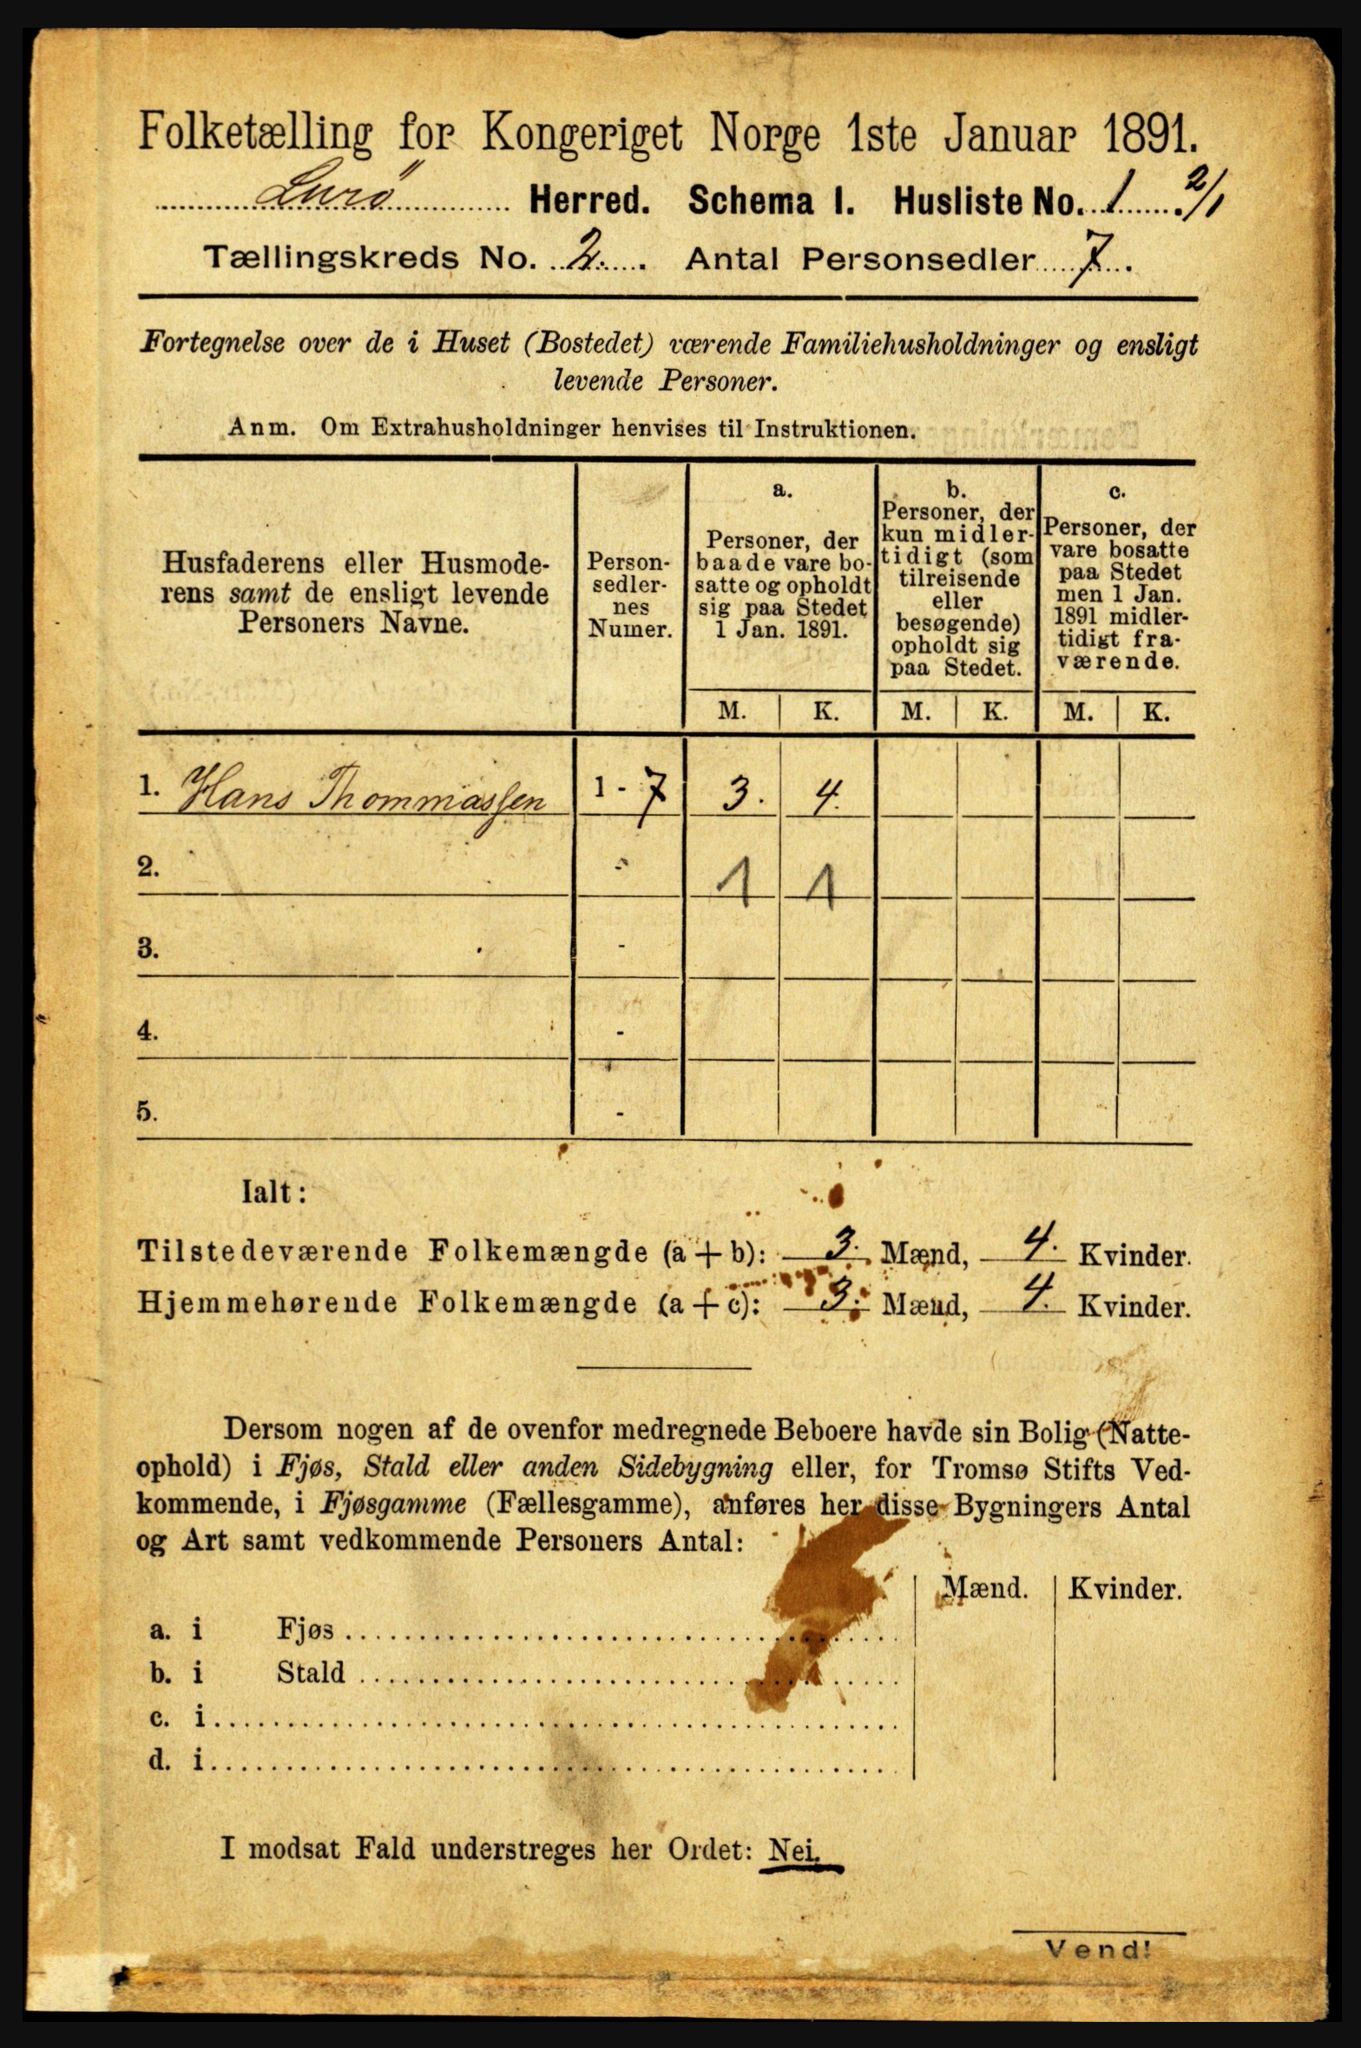 Folketælling for Kongeriget Norge 1ste Januar 1891.
Lurø Herred. Schema I. Husliste No. 1. 2/1
Tællingskreds No. 2. Antal Personsedler 7.
Fortegnelse over de i Huset (Bostedet) værende Familiehusholdninger og ensligt
levende Personer.
Anm. Om Extrahusholdninger henvises til Instruktionen.
Husfaderens eller Husmode-
rens samt de ensligt levende
Personers Navne.
Person-
sedler-
nes
Numer.
a.
Personer, der
baade vare bo-
satte og opholdt
sig paa Stedet
1 Jan. 1891.
b.
Personer, der
kun midler-
tidigt (som
tilreisende
eller
besøgende)
opholdt sig
paa Stedet.
c.
Personer, der
vare bosatte
paa Stedet
men 1 Jan.
1891 midler-
tidigt fra-
værende.
M. K. M. K. M. K.
1. Hans Thommassen 1 - 7 3. 4.
2. - 1 1
3. -
4. -
5. -
Ialt:
Tilstedeværende Folkemængde (a + b): 3. Mænd, 4. Kvinder.
Hjemmehørende Folkemængde (a + c): 3. Mænd, 4. Kvinder.
Dersom nogen af de ovenfor medregnede Beboere havde sin Bolig (Natte-
ophold) i Fjøs, Stald eller anden Sidebygning eller, for Tromsø Stifts Ved-
kommende, i Fjøsgamme (Fællesgamme), anføres her disse Bygningers Antal
og Art samt vedkommende Personers Antal:
Mænd. Kvinder.
a. i Fjøs
b. i Stald
c. i
d. i
I modsat Fald understreges her Ordet: Nei.
Vend!